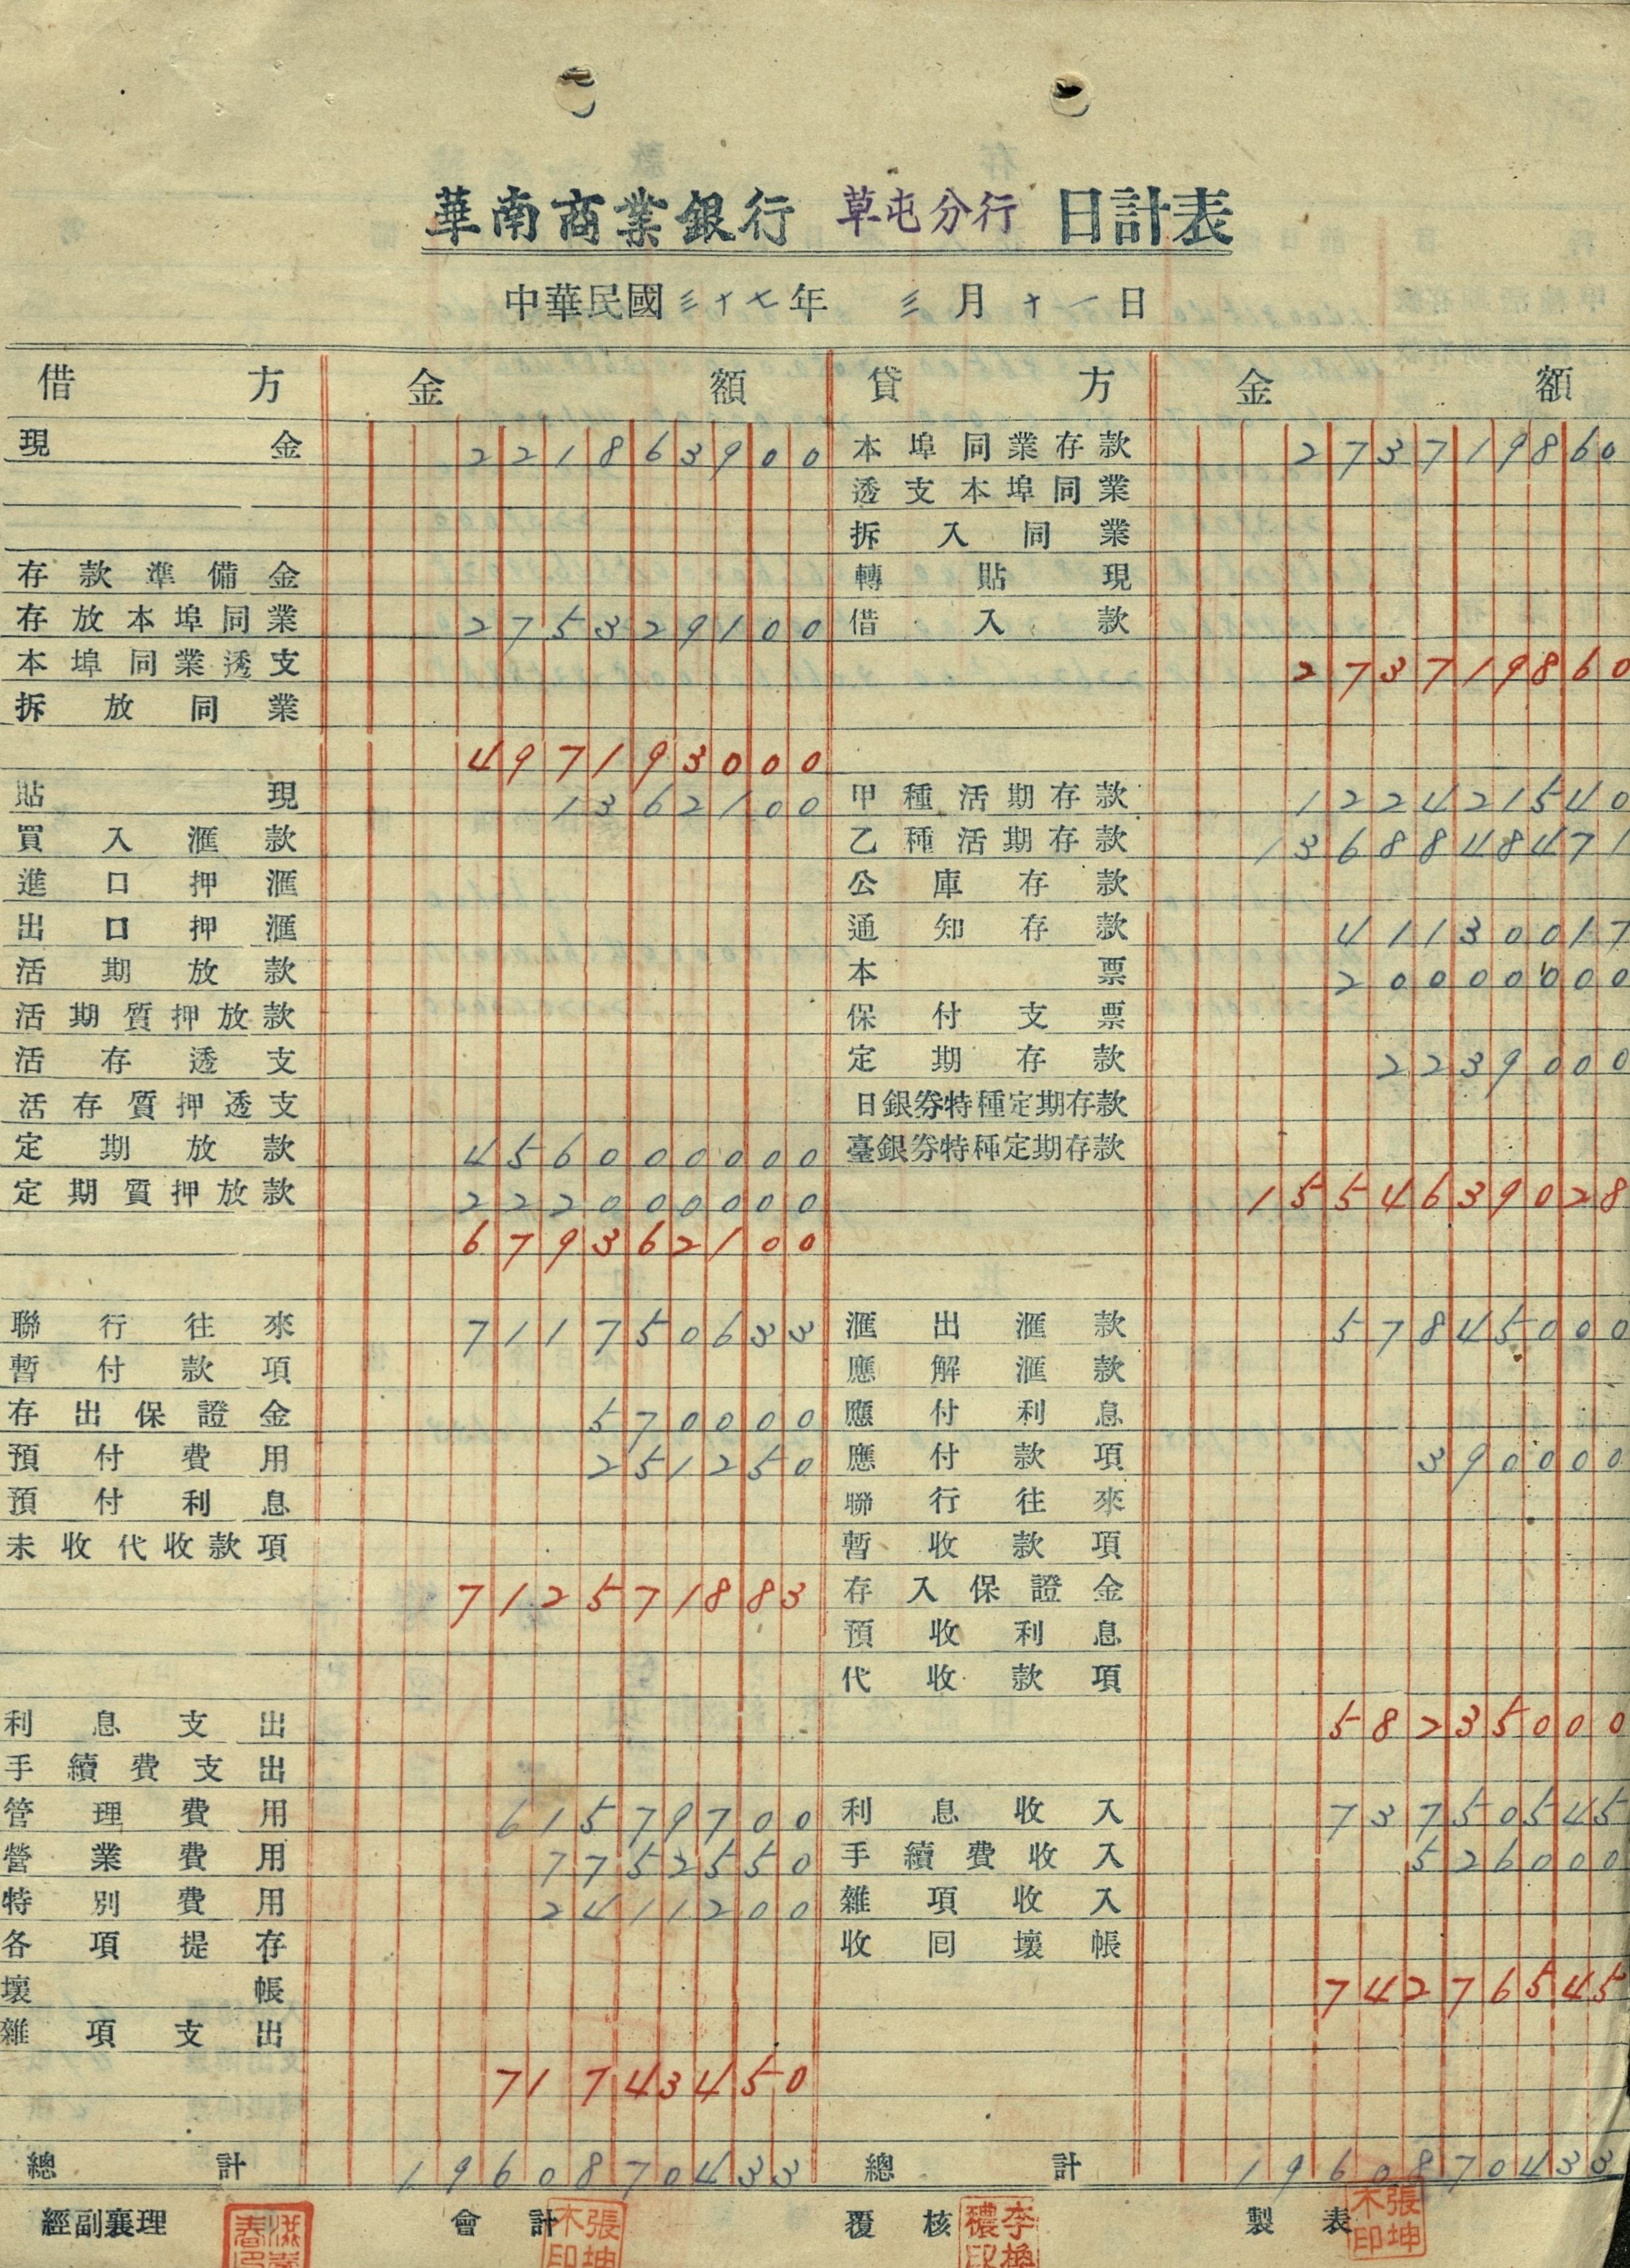 華南商業銀行 草屯分行 日計表
中華民國三十七年 三月十一日
借方 金額 貸方 金額
現金 221863900 本埠同業存款 273719860
透支本埠同業
拆入同業
存款準備金 轉貼現
存放本埠同業 275329100 借入款
本埠同業透支 273719860
拆放同業
497193000
貼現 1362100 甲種活期存款 122421540
買入滙款 乙種活期存款 1368848471
進口押滙 公庫存款
出口押滙 通知存款 41130017
活期放款 本票 20000000
活期質押放款 保付支票
活存透支 定期存款 2239000
活存質押透支 日銀券特種定期存款
定期放款 456000000 臺銀券特種定期存款
定期質押放款 222000000 1554639028
679362100
聯行往來 711750633 滙出滙款 57845000
暫付款項 應解滙款
存出保證金 570000 應付利息
預付費用 251250 應付款項 390000
預付利息 聯行往來
未收代收款項 暫收款項
712571883 存入保證金
預收利息
代收款項
利息支出 58235000
手續費支出
管理費用 61579700 利息收入 73750545
營業費用 7752550 手續費收入 526000
特別費用 2411200 雜項收入
各項提存 收回壞帳
壞帳 74276545
雜項支出
71743450
總計 1960870433 總計 1960870433
經副襄理 會計 張坤木印 覆核 製表 張坤木印